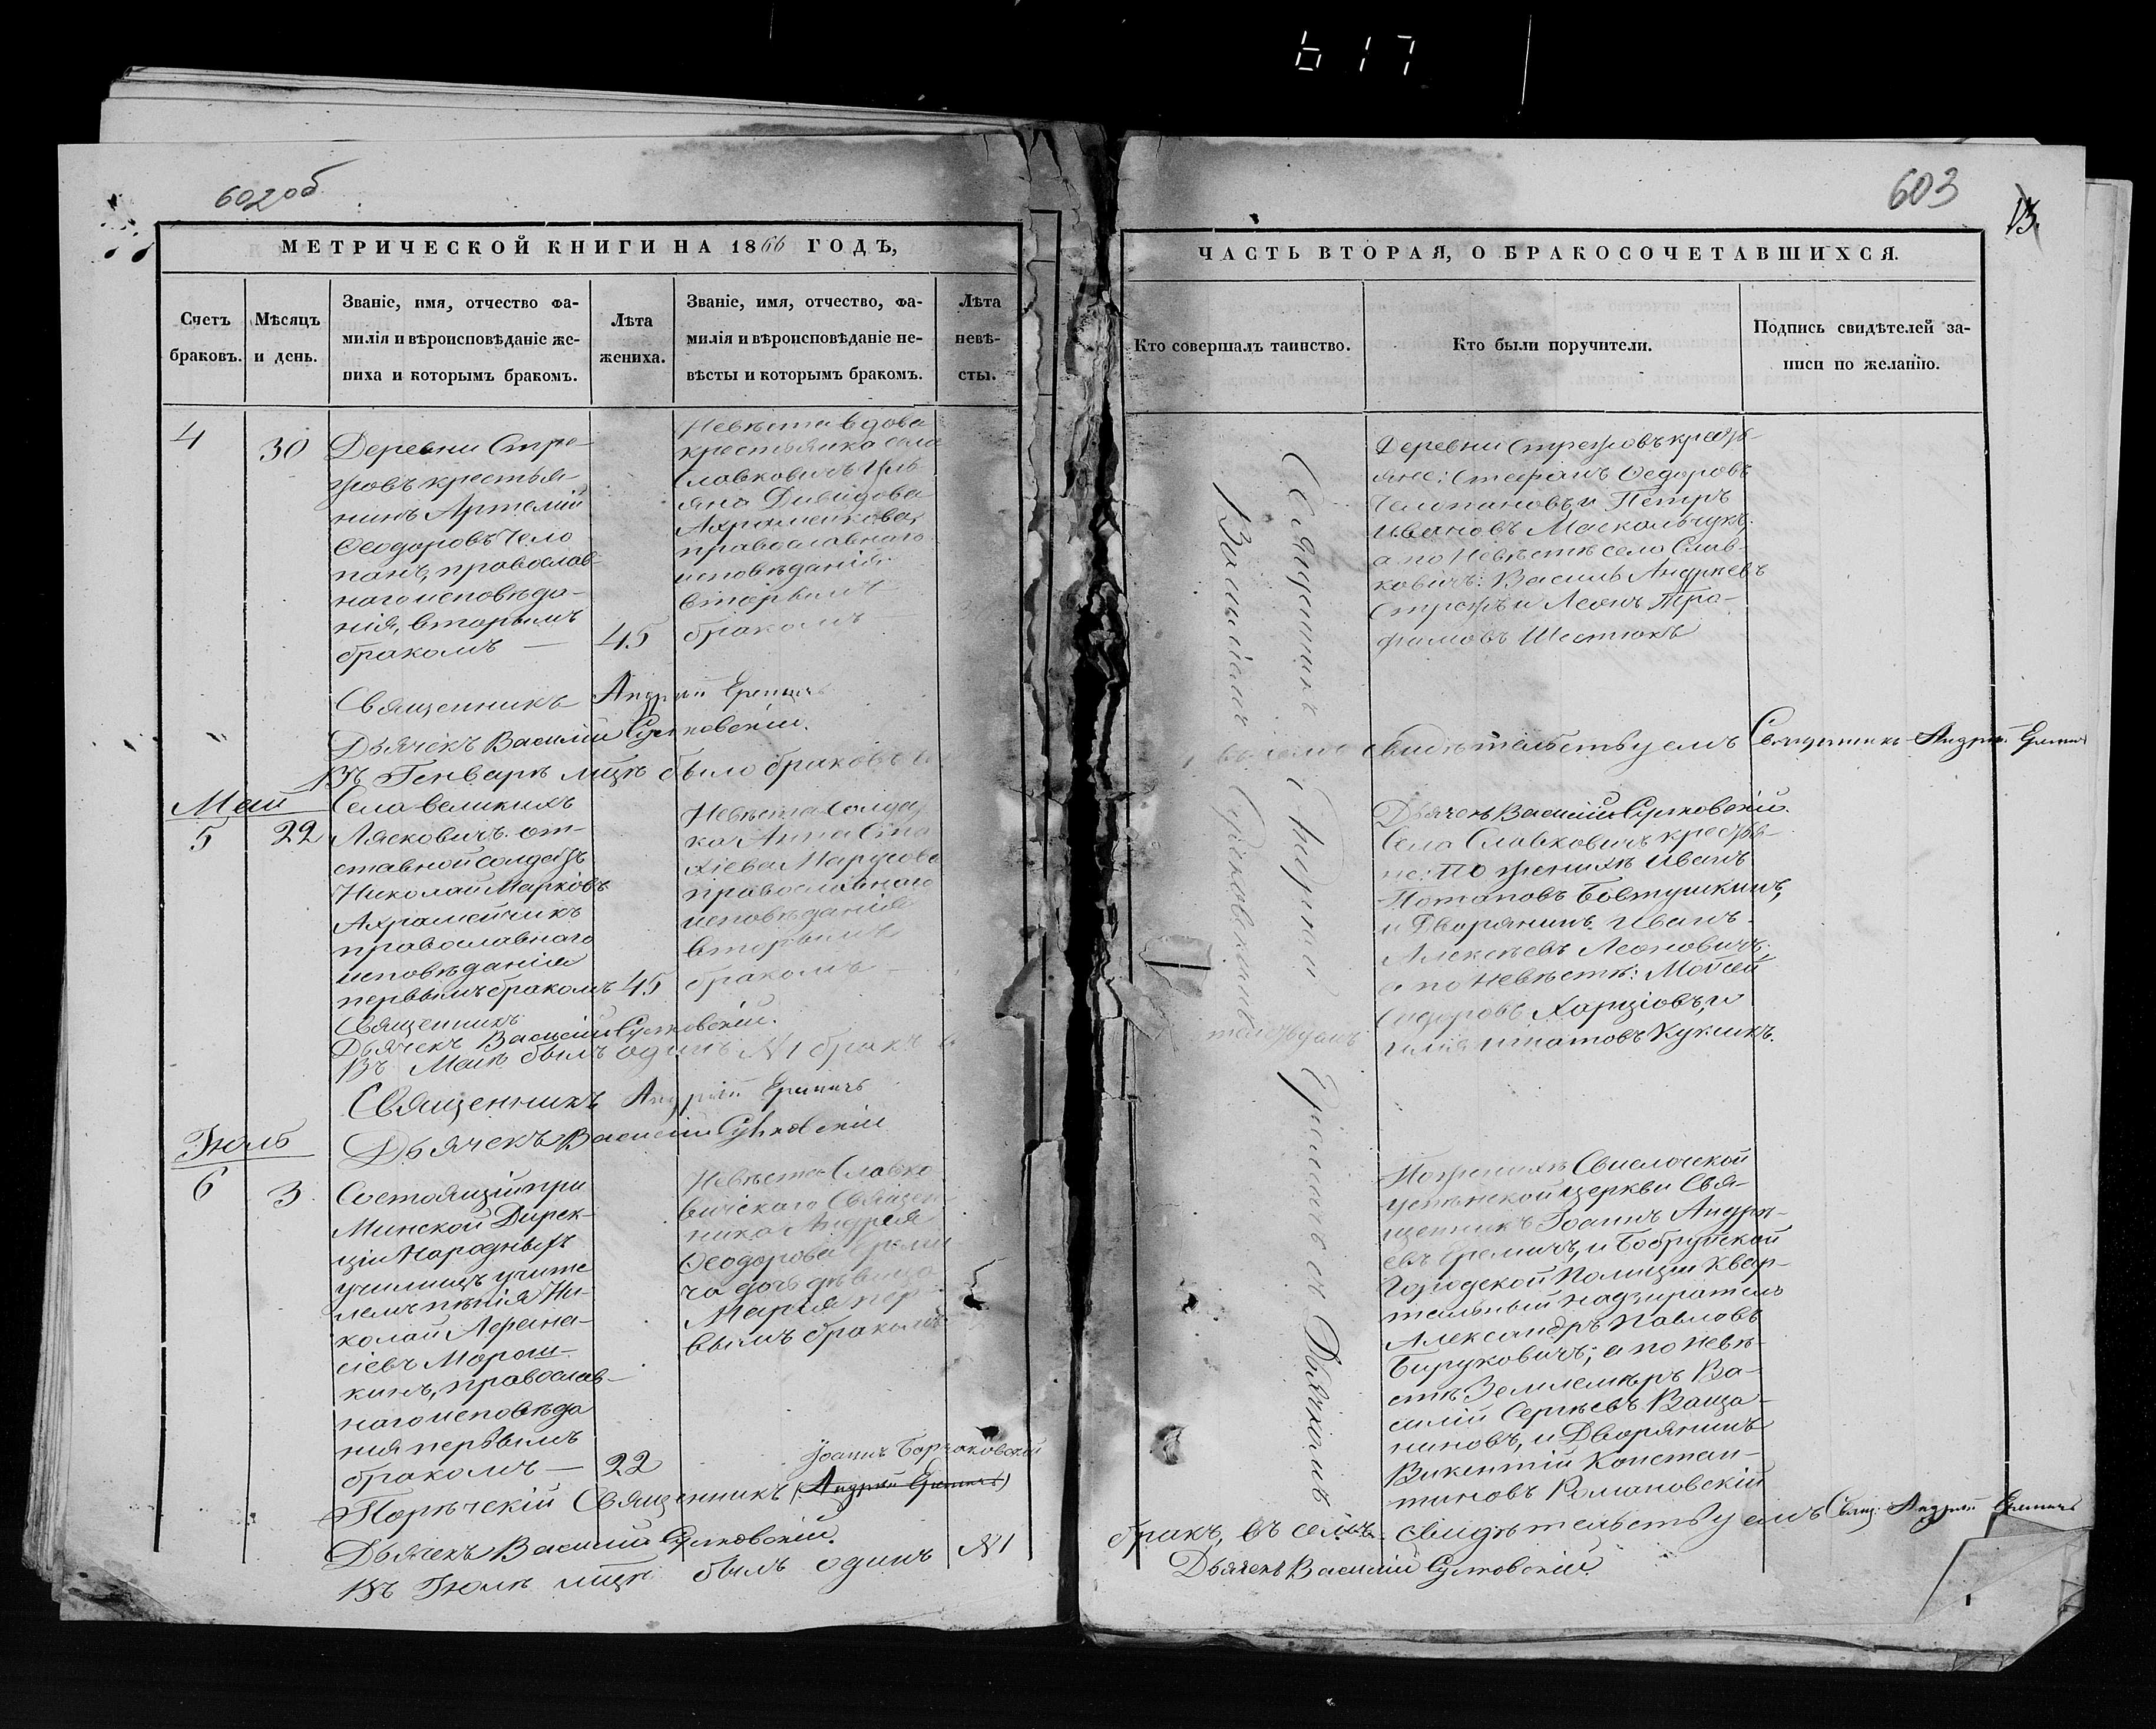 617
602об
МЕТРИЧЕСКОЙ КНИГИ НА 1866 ГОДЪ,
Счетъ
браковъ.
Мѣсяцъ
и день.
Званіе, имя, отчество фа-
милія и вѣроисповѣданіе же-
ниха и которымъ бракомъ.
Лѣта
жениха.
Званіе, имя, отчество, фа-
милія и вѣроисповѣданіе не-
вѣсты и которымъ бракомъ.
Лѣта
невѣ-
сты.
4
30
Деревни Стре-
жовъ крестья-
нинъ Артемій
Ѳеодоровъ Чело
панъ, православ-
наго исповѣда-
нія, вторымъ
бракомъ —
45
Невѣста вдова
крестьянка села
Славковичъ Уль
яна Давидова
Ахраменкова,
православнаго
исповѣданія
вторымъ
бракомъ
Священникъ Андрей Еремичъ
Дьячекъ Василій Сулковскій.
Въ Генварѣ мцѣ было браковъ
Май
5
22
Села Великихъ
Лясковичъ от-
ставной солдатъ
Николай Марковъ
Ахрамейчикъ
православнаго
исповѣданія
первымъ бракомъ
45
Невѣста Солдат
ка Анна Ста
хіева Марусова
православнаго
исповѣданія
вторымъ
бракомъ
Священникъ
Дьячекъ Василій Сулковскій.
Въ Маѣ былъ одинъ №1 бракъ в
Священникъ Андрей Еремичъ
Дьячекъ Василій Сулковскій
Іюль
6
3
Состоящій при
Минской Дирек-
ціи Народныхъ
училищъ учите
лемъ пѣнія Ни-
колай Афана-
сіевъ Морош-
кинъ, православ-
наго исповѣда
нія первымъ
бракомъ —
22
Невѣста Славко
вичскаго Священ
ника Андрея
Ѳеодорова Ереми
ча дочь дѣвица
Марія пер
вымъ бракомъ
Іоаннъ Барчаковскій
Порѣчскій Священникъ (Андрей Еремичъ)
Дьячекъ Василій Сулковскій.
Въ Іюлѣ мцѣ былъ одинъ №1
603
13.
ЧАСТЬ ВТОРАЯ, О БРАКОСОЧЕТАВШИХСЯ.
Кто совершалъ таинство.
Кто были поручители.
Подпись свидѣтелей за-
писи по желанію.
Священникъ Андрей Еремичъ съ Дьячкомъ
Василіемъ Сулковскимъ
Деревни Стрежовъ кресть-
яне: Стефанъ Ѳедоровъ
Челопановъ и Петръ
Ивановъ Маскальчукъ.
а по Невѣстѣ села Слав-
ковичъ: Василь Андреевъ
Стрежъ и Леонъ Тро-
фимовъ Шестюкъ
въ семъ свидѣтельствуемъ Священникъ Андрей Еремичъ
Дьячекъ Василій Сулковскій.
Села Славковичъ кресть-
не: По женихѣ Иванъ
Потаповъ Бовтушкинъ,
и Дворянинъ Иванъ
Алексѣевъ Леоновичъ.
а по Невѣстѣ: Мойсей
Сидоровъ Харціовъ, и
Игнатовъ Куксикъ.
По женихѣ Свислочской
Успѣнской церкви Свя-
щенникъ Іоаннъ Андре-
евъ Еремичъ, и Бобруйской
Городской Полиціи Квар-
тальный надзиратель
Александръ Павловъ
Бируковичъ; а по Невѣ-
стѣ Землемѣръ Ва-
силій Сергѣевъ Ваща-
ниновъ, и Дворянинъ
Викентій Констан-
тиновъ Романовскій
бракъ, въ семъ свидѣтельствуемъ Свящ. Андрей Еремичъ
Дьячекъ Василій Сулковскій.